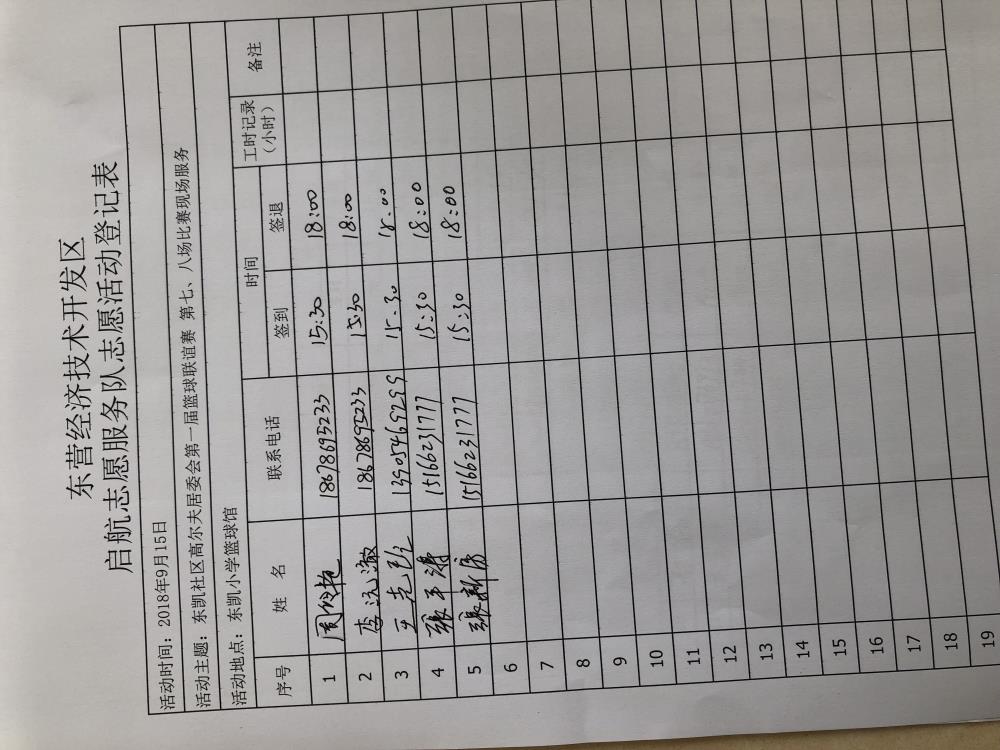 东营经济技术开发区
启航志愿服务队志愿活动登记表
活动时间：2018年9月15日
活动主题：东凯社区高尔夫居委会第一届篮球联谊赛 第七、八场比赛现场服务
活动地点：东凯小学篮球馆
序号 姓 名 联系电话 时间 工时记录（小时） 备注
签到 签退
1 18678695233 15:30 18:00
2 18678695233 15:30 18:00
3 13905469299 15.30 18.00
4 15166231777 15:30 18:00
5 15166231777 15:30 18:00
6
7
8
9
10
11
12
13
14
15
16
17
18
19